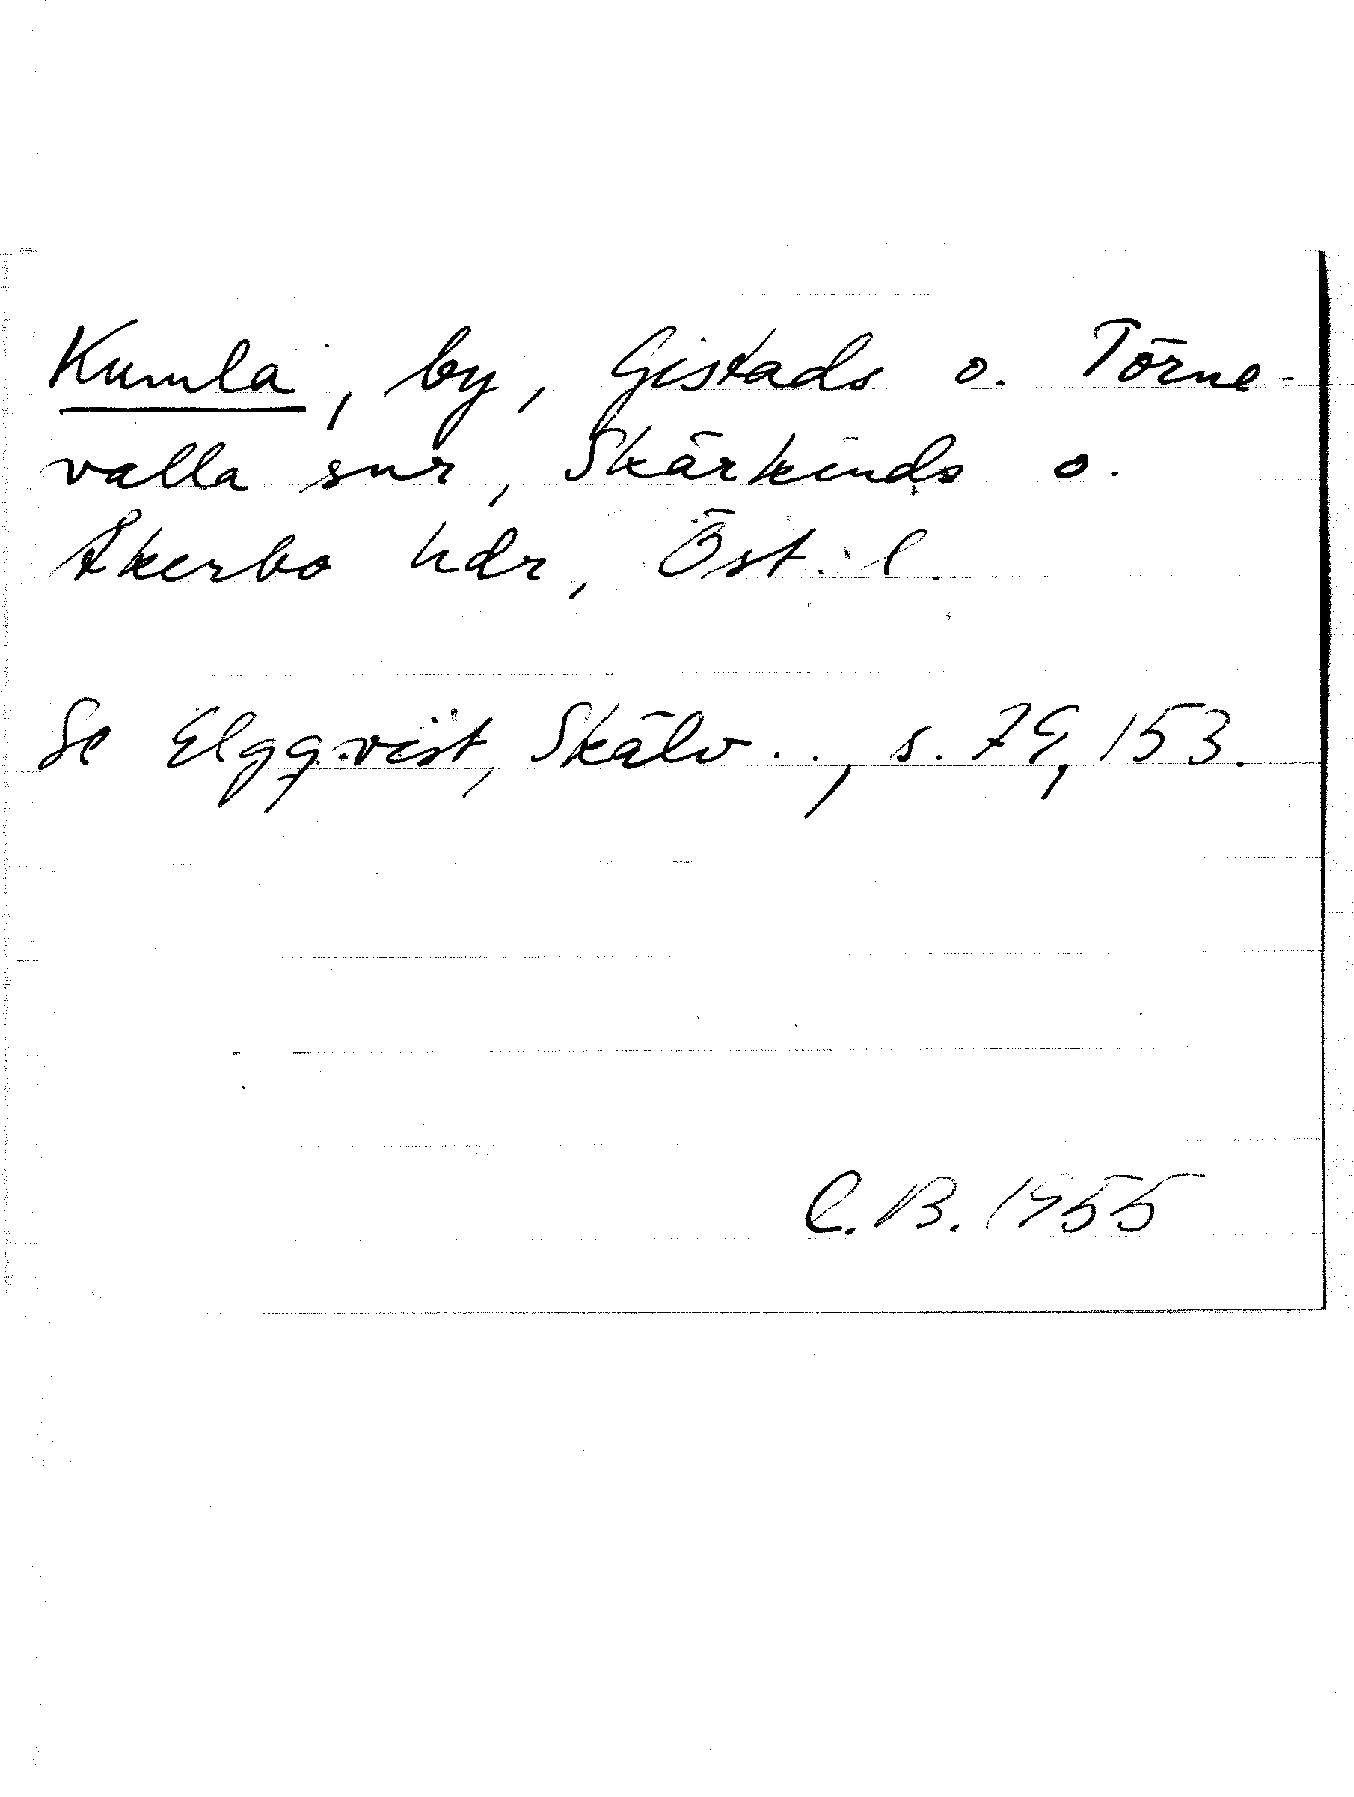 Kumla, by, Gistads o. Törne-
valla snr, Skärkinds o.
Åkerbo hdr, Öst. l.
Se Elgqvist, Skälv.., s. 79, 153.
C.B. 1955